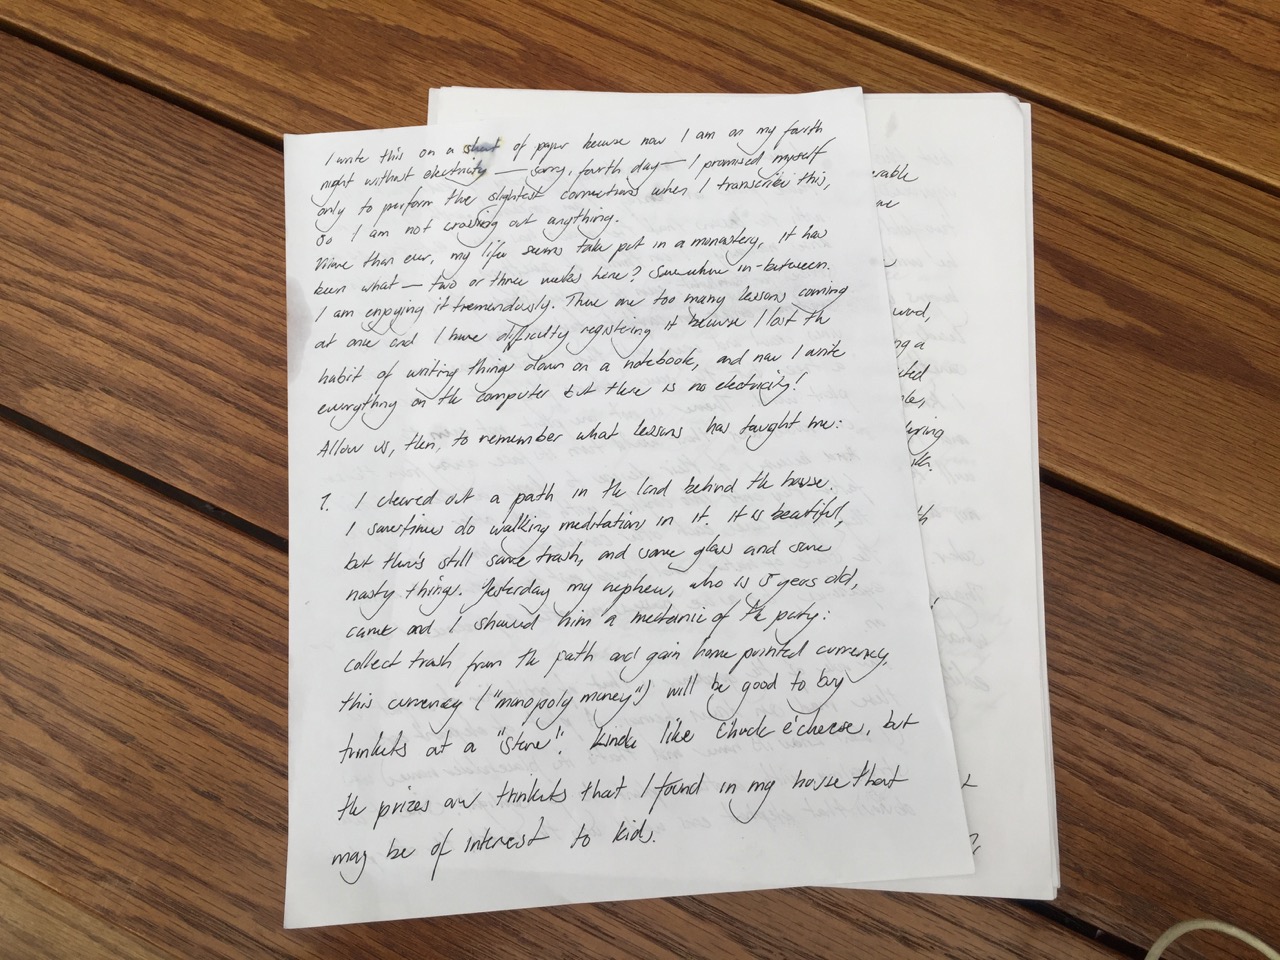 I write this on a sheet of paper because now I am on my fourth
night without electricity — sorry, fourth day — I promised myself
only to perform the slightest corrections when I transcribe this,
So I am not crossing out anything.
More than ever, my life seems take put in a monastery, it has
been what — two or three weeks here? Somewhere in-between.
I am enjoying it tremendously. There are too many lessons coming
at once and I have difficulty registering it because I lost the
habit of writing things down on a notebook, and now I write
everything on the computer but there is no electricity!
Allow us, then, to remember what lessons has taught me:
1. I cleared out a path in the land behind the house.
I sometimes do walking meditation in it. It is beautiful,
but there's still some trash, and some glass and some
nasty things. Yesterday my nephew, who is 5 years old,
came and I showed him a mechanic of the party:
collect trash from the path and gain home printed currency,
this currency ("monopoly money") will be good to buy
trinkets at a "store". Kinda like Chuck e'cheese, but
the prizes are trinkets that I found in my house that
may be of interest to kids.
erable
ne
word,
ng a
ted
ering
th